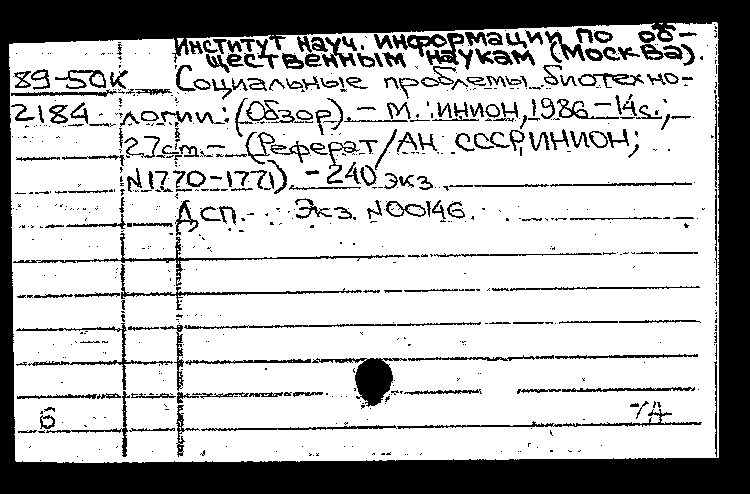 Институт науч. информации по об-
щественным наукам (Москва).
89-50К Социальные проблемы биотехно-
2184 логии: (Обзор). - М.: ИНИОН, 1986 - 14с.;
27см. - (Реферат/АН СССР, ИНИОН;
N1770-1771) - 240 экз.
ДСП. - Экз. N00146.
6